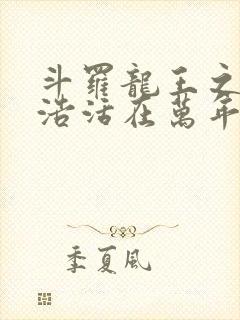 斗羅龍王之
浩活在萬年
季夏風